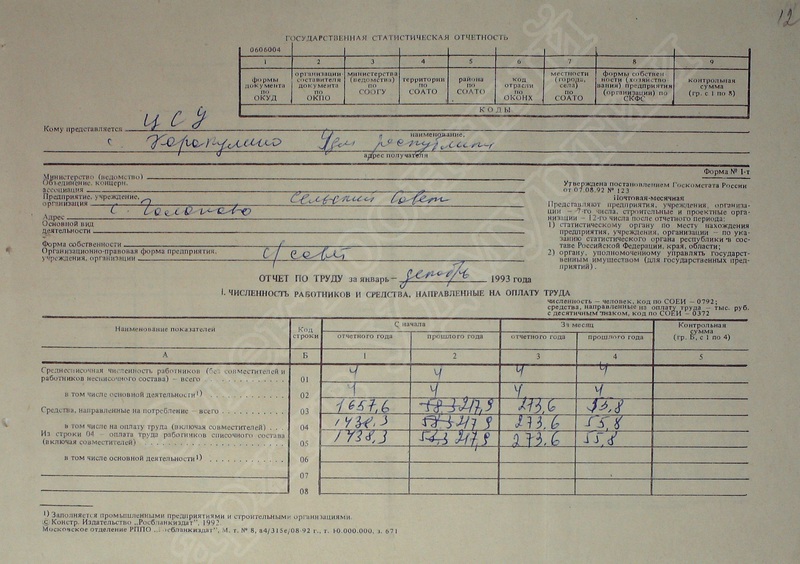 12
ГОСУДАРСТВЕННАЯ СТАТИСТИЧЕСКАЯ ОТЧЕТНОСТЬ
0606004
1 2 3 4 5 6 7 8 9
формы документа по ОКУД
организации составителя документа по ОКПО
министерства (ведомства) по СООГУ
территории по СОАТО
района по СОАТО
код отрасли по ОКОНХ
местности (города, села) по СОАТО
формы собственности (хозяйствования) предприятия (организации) по СКФС
контрольная сумма (гр. с 1 по 8)
КОДЫ
Кому представляется ЦСУ
наименование
с. Каракулино Удм республики
адрес получателя
Министерство (ведомство)
Объединение, концерн, ассоциация
Предприятие, учреждение, организация Сельский Совет
Адрес с. Галаново
Основной вид деятельности
Форма собственности
Организационно-правовая форма предприятия, учреждения, организации с/совет
Форма № 1-т
Утверждена постановлением Госкомстата России
от 07.08.92 № 123
Почтовая-месячная
Представляют предприятия, учреждения, организации — 7-го числа, строительные и проектные организации — 12-го числа после отчетного периода:
1) статистическому органу по месту нахождения предприятия, учреждения, организации — по указанию статистического органа республики в составе Российской Федерации, края, области;
2) органу, уполномоченному управлять государственным имуществом (для государственных предприятий).
ОТЧЕТ ПО ТРУДУ за январь — декабрь 1993 года
I. ЧИСЛЕННОСТЬ РАБОТНИКОВ И СРЕДСТВА, НАПРАВЛЕННЫЕ НА ОПЛАТУ ТРУДА
численность — человек, код по СОЕИ — 0792;
средства, направленные на оплату труда — тыс. руб.
с десятичным знаком, код по СОЕИ — 0372
Наименование показателей
Код строки
С начала
За месяц
Контрольная сумма (гр. Б, с 1 по 4)
отчетного года прошлого года отчетного года прошлого года
А Б 1 2 3 4 5
Среднесписочная численность работников (без совместителей и работников несписочного состава) — всего 01 4 4 4 4
в том числе основной деятельности1) 02 4 4 4 4
Средства, направленные на потребление — всего 03 1657,6 217,9 273,6 55,8
в том числе на оплату труда (включая совместителей) 04 1438,3 217,9 273,6 55,8
Из строки 04 — оплата труда работников списочного состава (включая совместителей) 05 1438,3 217,9 273,6 55,8
в том числе основной деятельности1) 06
07
08
1) Заполняется промышленными предприятиями и строительными организациями.
© Констр. Издательство „Росбланкиздат", 1992.
Московское отделение РППО „Росбланкиздат", М. т. № 8, а4/315е/08-92 г., т. 10.000.000, з. 671